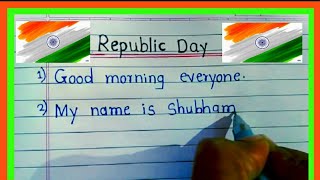 Republic Day
1) Good morning everyone.
2) My name is Shubham